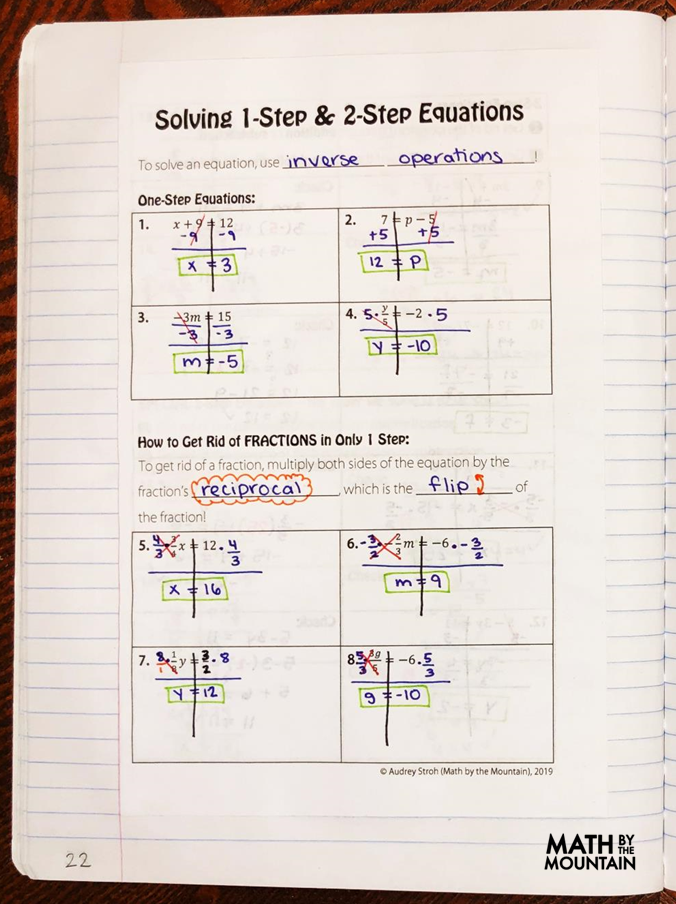 Solving 1-Step & 2-Step Equations
To solve an equation, use inverse operations !
One-Step Equations:
1. x + 9 = 12
-9 -9
x = 3
2. 7 = p − 5
+5 +5
12 = P
3. −3m = 15
-3 -3
m = -5
4. 5 · y/5 = −2 · 5
y = -10
How to Get Rid of FRACTIONS in Only 1 Step:
To get rid of a fraction, multiply both sides of the equation by the
fraction's reciprocal, which is the flip of
the fraction!
5. 4/3 · 3/4 x = 12 · 4/3
x = 16
6. -3/2 · −2/3 m = −6 · -3/2
m = 9
7. 8/1 · 1/8 y = 3/2 · 8
y = 12
8. 5/3 · 3g/5 = −6 · 5/3
g = -10
© Audrey Stroh (Math by the Mountain), 2019
22
MATH BY THE
MOUNTAIN